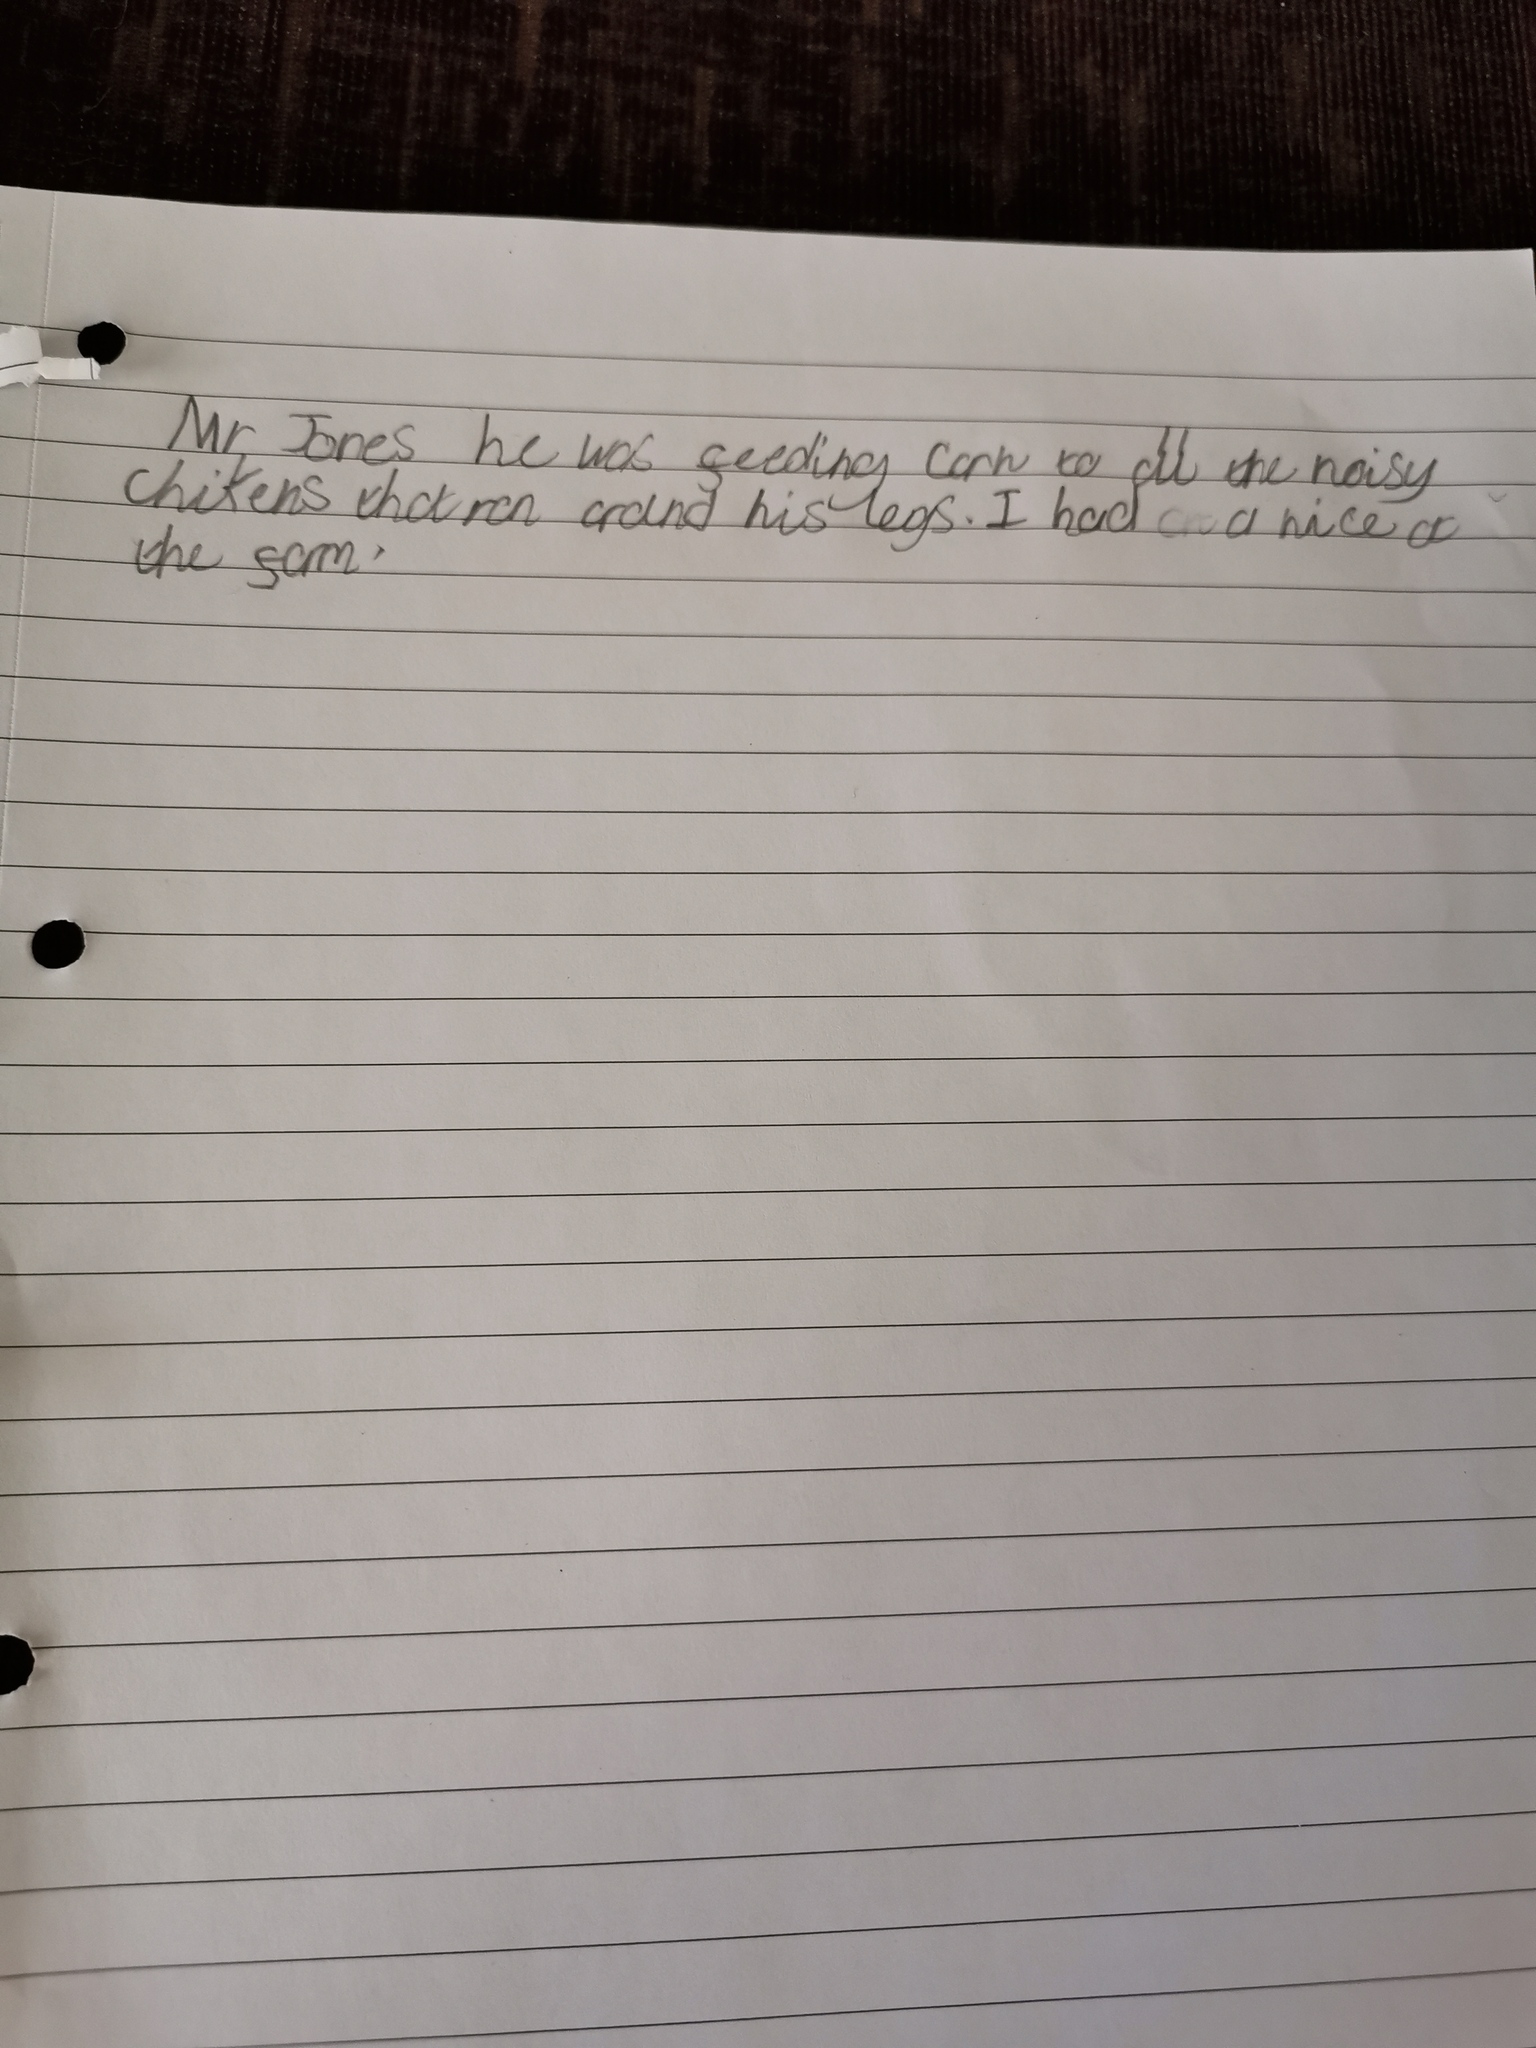 Mr Jones he was feeding corn to all the noisy
chikens that ran around his legs. I had a nice at
the farm.